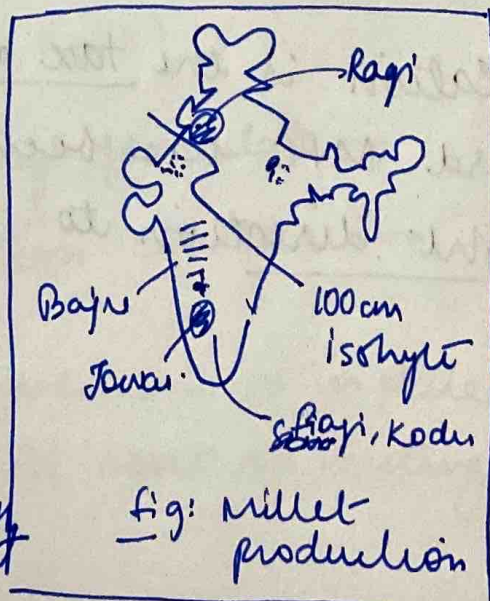 Ragi
Bajra
Jowar.
100cm
isohyet
Ragi, Kodu
fig: Millet
production